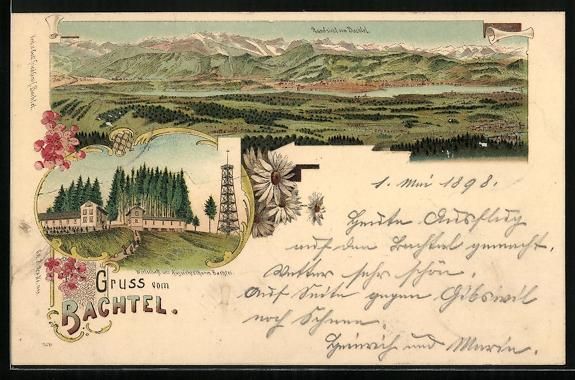 Rundsicht vom Bachtel.
Wirtschaft und Aussichtsthurm Bachtel.
Gruss vom
BACHTEL.
1. Mai 1898.
Heute Ausflug
auf den Bachtel gemacht.
Wetter sehr schön.
Auf Seite gegen Gibswil
noch Schnee.
Heinrich und Marie.